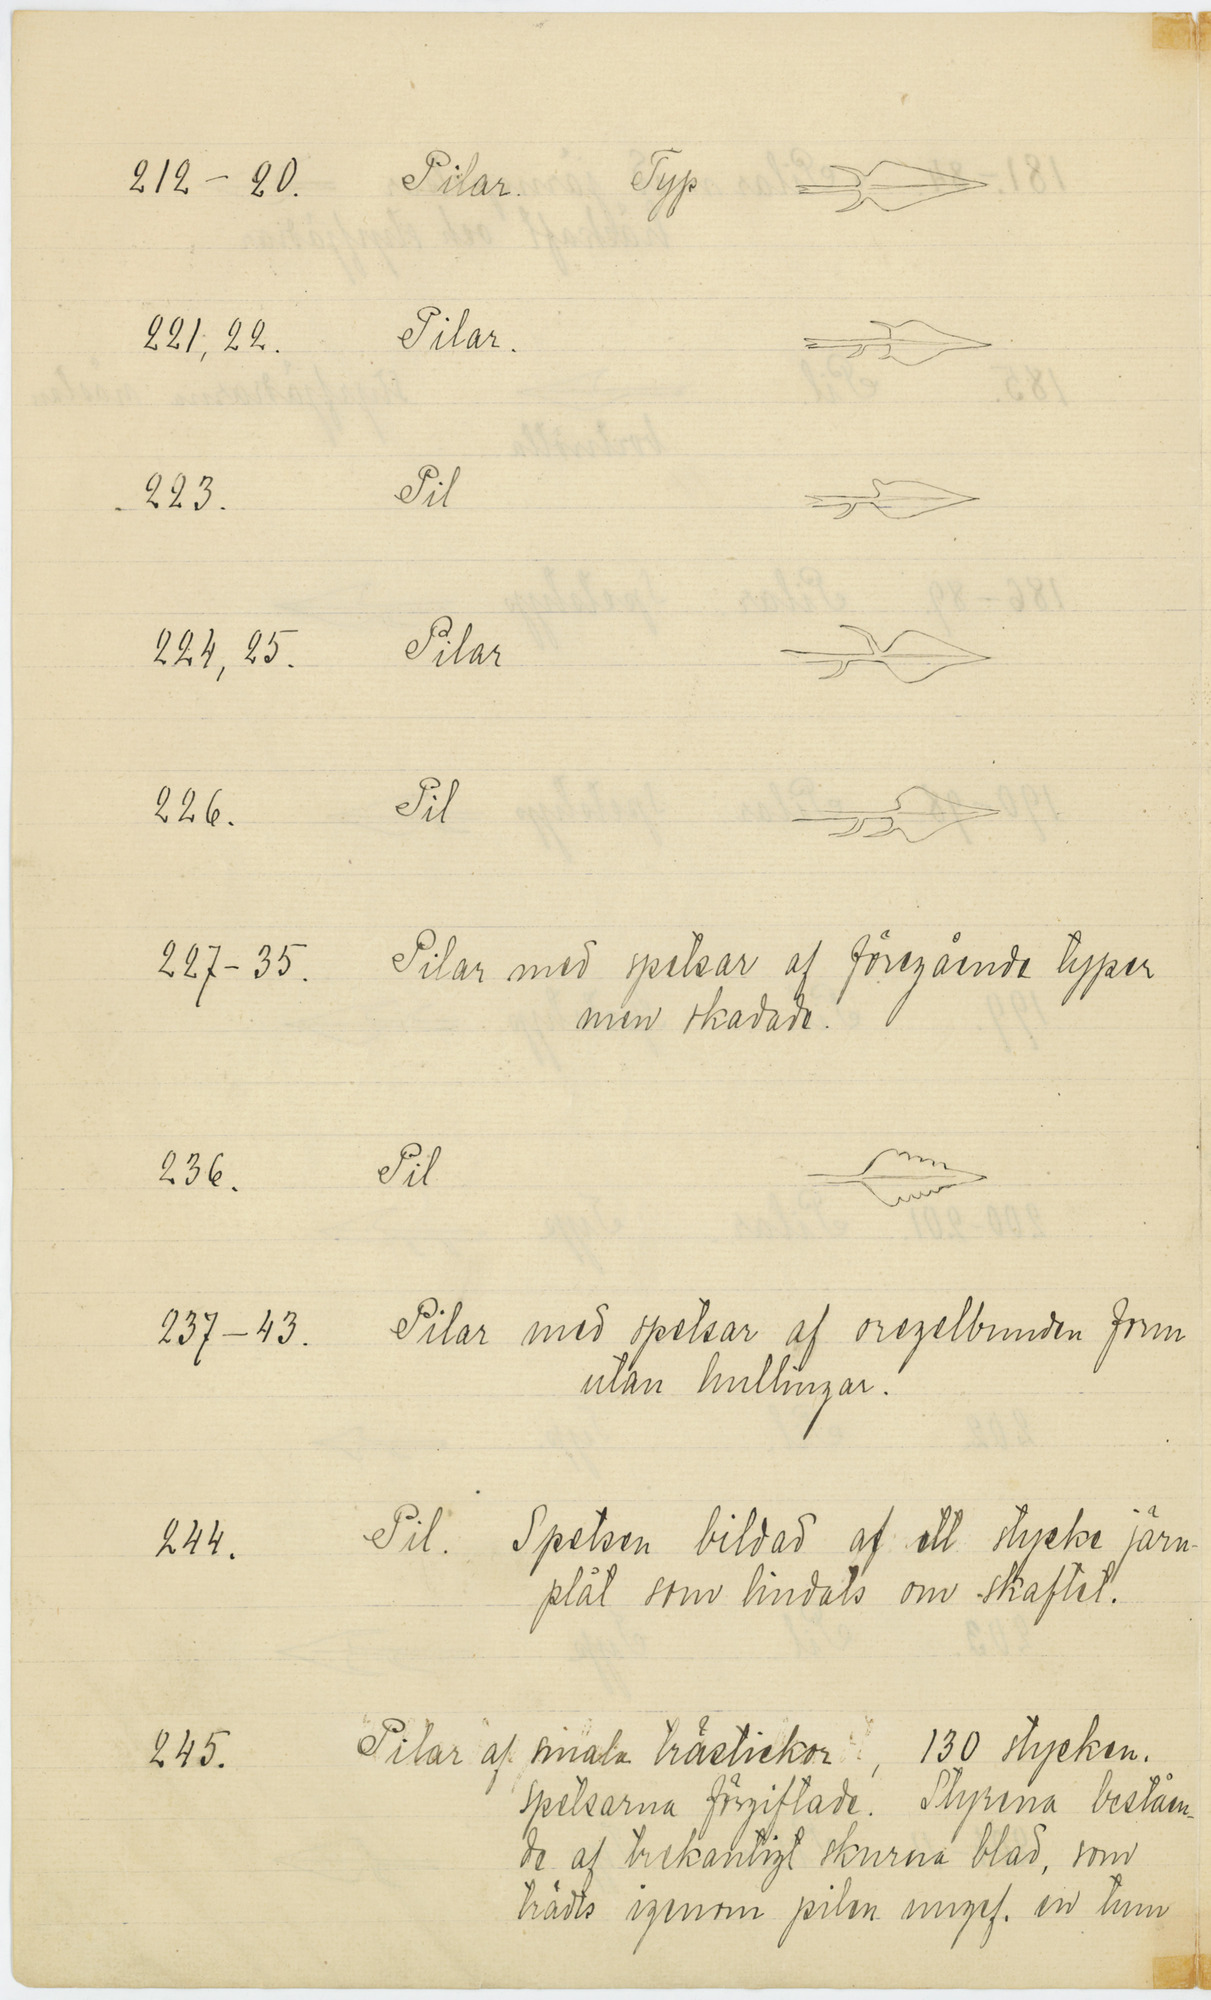 212 – 20. Pilar. Typ
221, 22. Pilar.
223. Pil
224, 25. Pilar
226. Pil
227 – 35. Pilar med spetsar af föregående typer
men skadade.
236. Pil
237 – 43. Pilar med spetsar af oregelbunden form
utan hullingar.
244. Pil. Spetsen bildad af ett stycke järn-
plåt som lindats om skaftet.
245. Pilar af smala trästickor, 130 stycken.
spetsarna förgiftade. Styrena beståen-
de af trekantigt skurna blad, som
trädts igenom pilen ungef. en tum